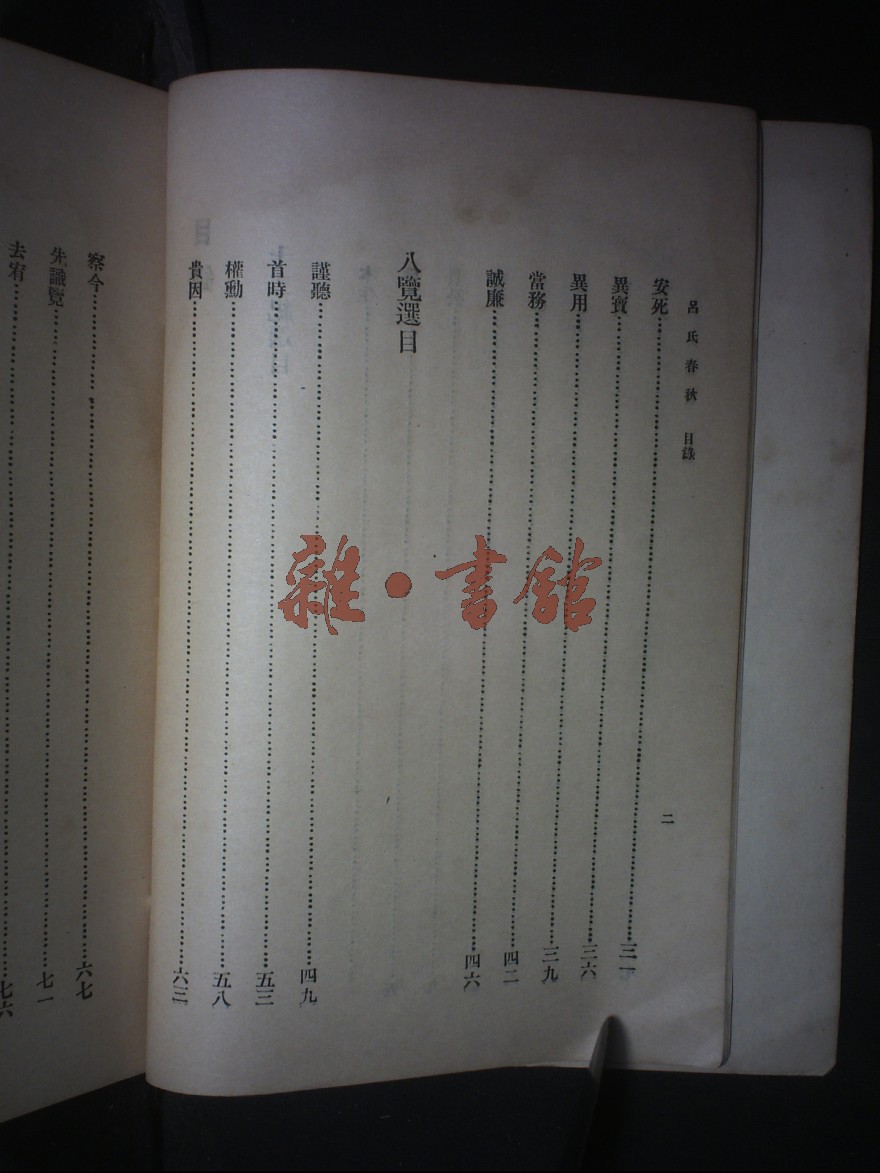 呂氏春秋 目錄
二
安死……三一
異寶……三六
異用……三九
當務……四二
誠廉……四六
八覽選目
謹聽……四九
首時……五三
權勳……五八
貴因……六三
察今……六七
先識覽……七一
去宥……七六
雜·書館